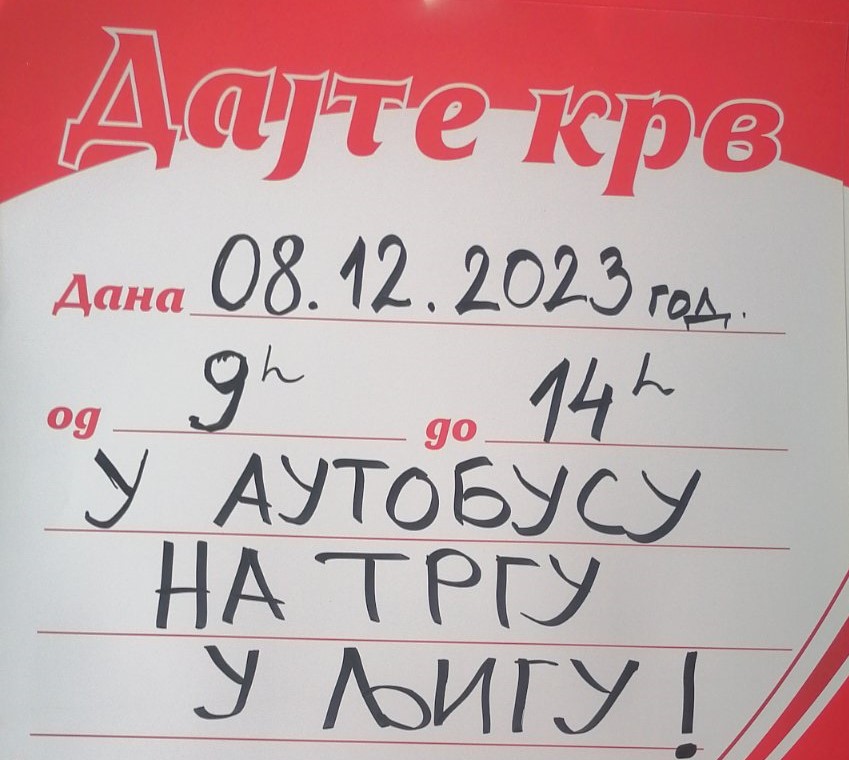 Дајте крв
Дана 08.12.2023 год.
од 9h до 14h
У АУТОБУСУ
НА ТРГУ
У ЉИГУ!